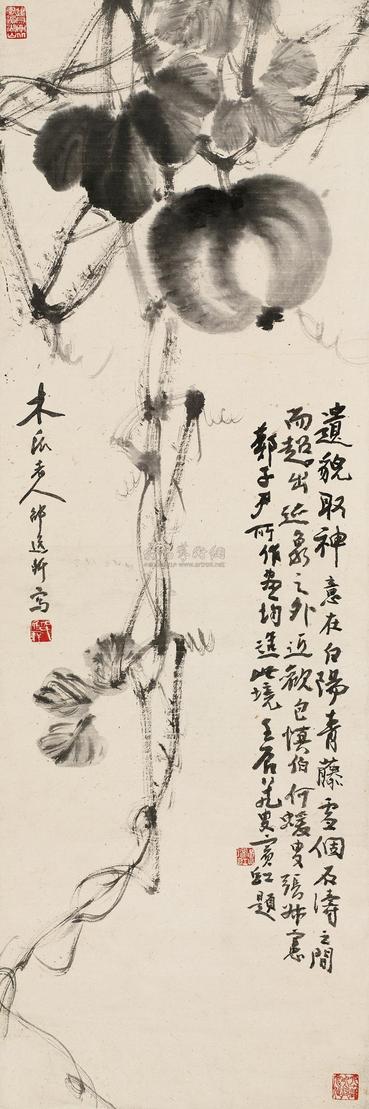 遺貌取神意在白陽青藤雪個石濤之間
而超出迹象之外近觀包慎伯何蝯叟張叔憲
鄭子尹所作畫均造此境 賓虹題
木瓜老人邵逸軒寫